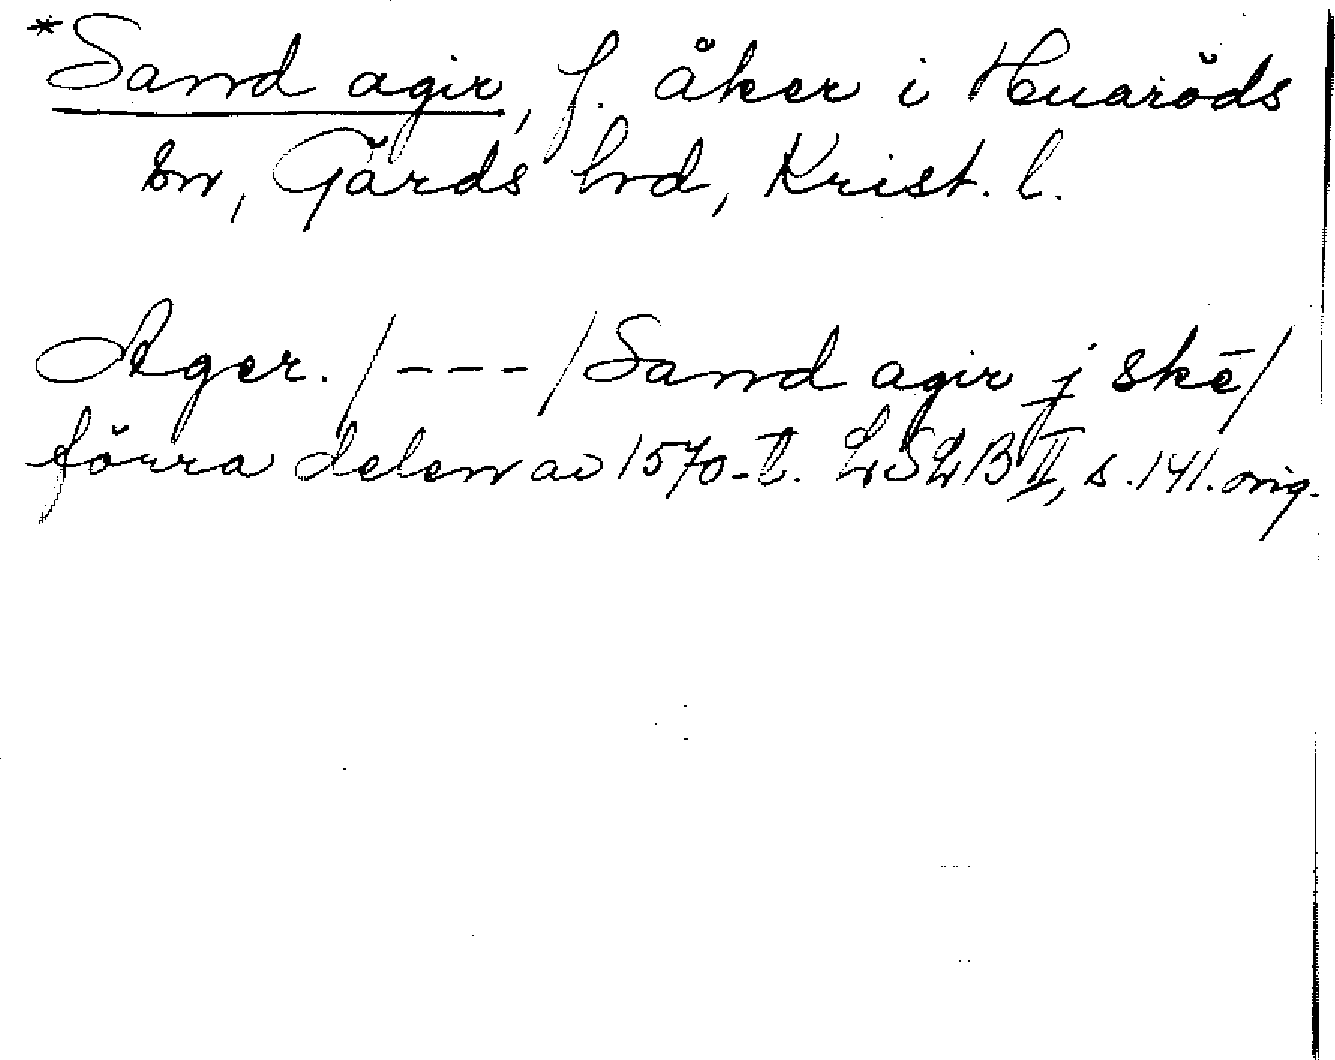 *Sand agir, f. åker i Huaröds
sn, Gärds hrd, Krist. l.
Ager. /---/ Sand agir j skē/
förra delen av 1570-t. LSLB II, s. 141. orig.